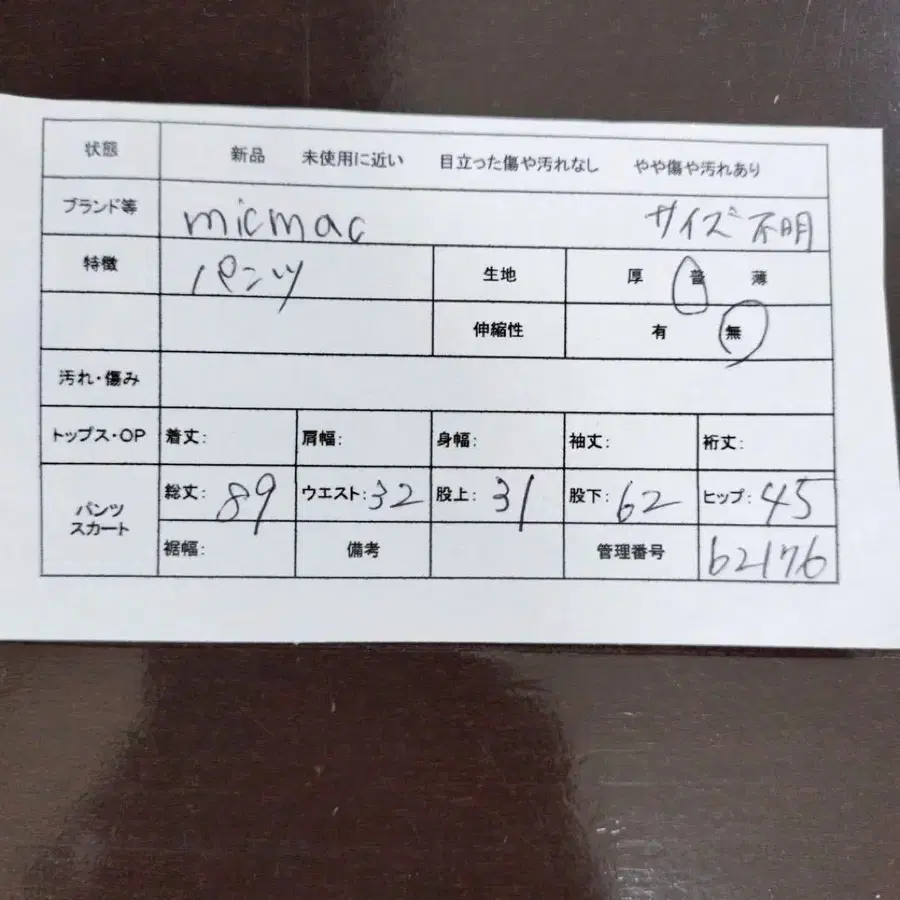 状態 新品 未使用に近い 目立った傷や汚れなし やや傷や汚れあり
ブランド等 micmac サイズ不明
特徴 パンツ 生地 厚 普 薄
伸縮性 有 無
汚れ・傷み
トップス・OP 着丈: 肩幅: 身幅: 袖丈: 裄丈:
パンツ スカート 総丈: 89 ウエスト: 32 股上: 31 股下: 62 ヒップ: 45
裾幅: 備考 管理番号 62176